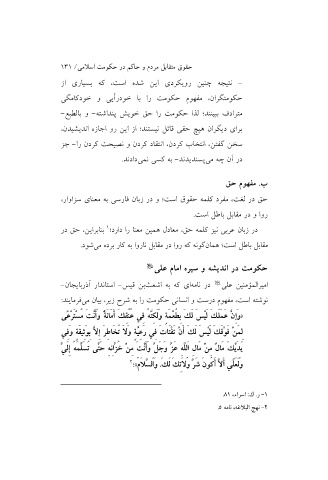 حقوق متقابل مردم و حاکم در حکومت اسلامی/ ۱۳۱
- نتیجه چنین رویکردی این شده است، که بسیاری از
حکومتگران، مفهوم حکومت را با خودرأیی و خودکامگی
مترادف ببینند؛ لذا حکومت را حق خویش پنداشته- و بالطبع-
برای دیگران هیچ حقی قائل نیستند؛ از این رو اجازه اندیشیدن،
سخن گفتن، انتخاب کردن، انتقاد کردن و نصیحت کردن را- جز
در آن چه می‌پسندیدند- به کسی نمی‌دادند.
ب. مفهوم حق
حق در لغت، مفرد کلمه حقوق است؛ و در زبان فارسی به معنای سزاوار،
روا و در مقابل باطل است.
در زبان عربی نیز کلمه حق، معادل همین معنا را دارد؛۱ بنابراین، حق در
مقابل باطل است؛ همان‌گونه که روا در مقابل ناروا به کار برده می‌شود.
حکومت در اندیشه و سیره امام علی
امیرالمؤمنین علی در نامه‌ای که به اشعث‌بن قیس- استاندار آذربایجان-
نوشته است، مفهوم درست و انسانی حکومت را به شرح زیر، بیان می‌فرمایند:
«وَإِنَّ عَمَلَكَ لَيْسَ لَكَ بِطُعْمَةٍ وَلَكِنَّهُ فِي عُنُقِكَ أَمَانَةٌ وَأَنْتَ مُسْتَرْعًى
لِمَنْ فَوْقَكَ لَيْسَ لَكَ أَنْ تَفْتَاتَ فِي رَعِيَّةٍ وَلَا تُخَاطِرَ إِلَّا بِوَثِيقَةٍ وَفِي
يَدَيْكَ مَالٌ مِنْ مَالِ اللَّهِ عَزَّ وَجَلَّ وَأَنْتَ مِنْ خُزَّانِهِ حَتَّى تُسَلِّمَهُ إِلَيَّ
وَلَعَلِّي أَلَّا أَكُونَ شَرَّ وُلَاتِكَ لَكَ. وَالسَّلَامُ»؛۲
۱- ر. ک: اسراء، ۸۱.
۲- نهج البلاغه، نامه ۵.